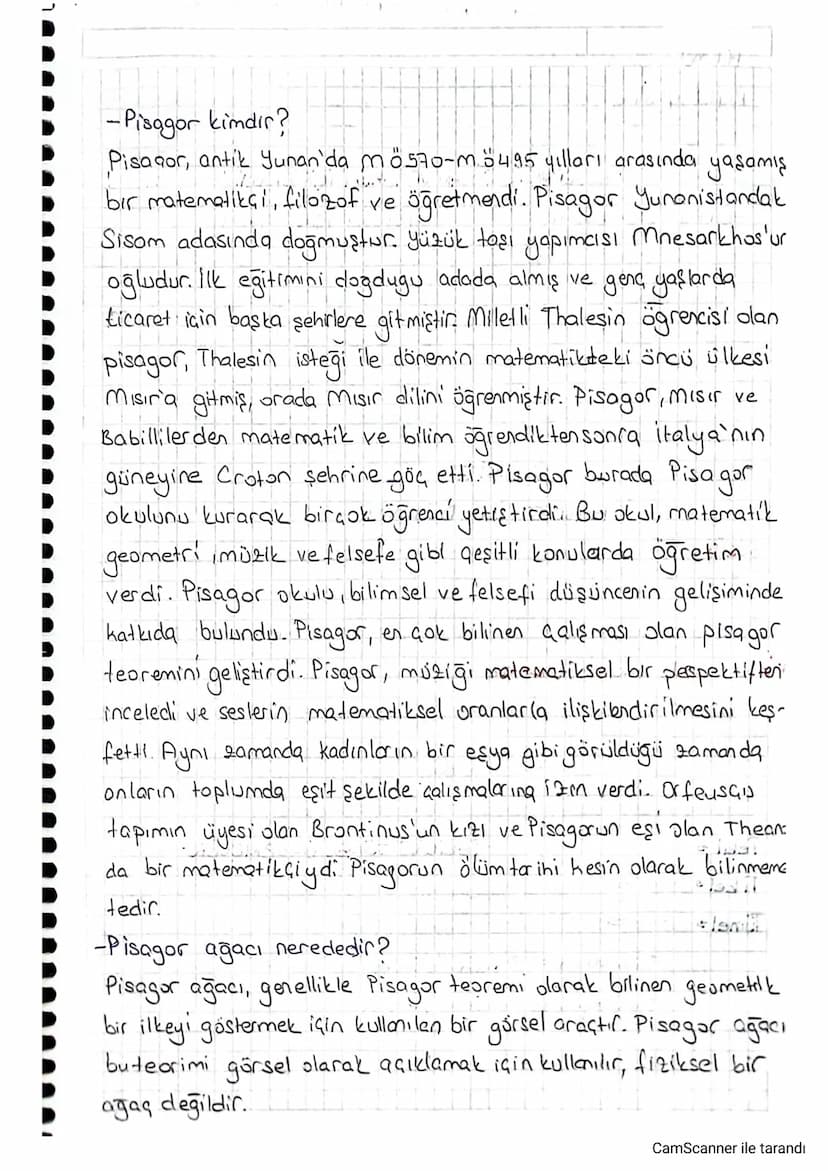 -Pisagor kimdir?
Pisagor, antik Yunan'da mö570-m.ö495 yılları arasında yaşamış
bir matematikçi, filozof ve öğretmendi. Pisagor Yunanistandak
Sisam adasında doğmuştur. Yüzük taşı yapımcısı Mnesarkhos'un
oğludur. İlk eğitimini dozdugu adada almış ve genç yaşlarda
ticaret için başka şehirlere gitmiştir. Milletli Thaleşin öğrencisi olan
pisagor, Thalesin isteği ile dönemin matematikteki öncü ülkesi
Mısır'a gitmiş, orada Mısır dilini öğrenmiştir. Pisagor, mısır ve
Babillilerden matematik ve bilim öğrendiktensonra italya'nın
güneyine Croton şehrine göç etti. Pisagor burada Pisagor
okulunu kurarak birçok öğrenci yetiştirdi. Bu okul, matematik
geometri, müzik ve felsefe gibi çeşitli konularda öğretim
verdi. Pisagor okulu, bilimsel ve felsefi düşüncenin gelişiminde
katkıda bulundu. Pisagor, en çok bilinen çalışması olan pisagor
teoremini geliştirdi. Pisagor, müziği matematiksel bir perspektiften
inceledi ve seslerin matematiksel oranlarla ilişkilendirilmesini keş-
fetti. Aynı zamanda kadınların bir eşya gibi görüldüğü zamanda
onların toplumda eşit şekilde çalışmalarına izin verdi. Orfeusçu
tapımın üyesi olan Brontinus'un kızı ve Pisagorun eşi olan Thean
da bir matematikçiydi. Pisagorun ölüm tarihi kesin olarak bilinmeme
tedir.
-Pisagor ağacı nerededir?
Pisagor ağacı, genellikle Pisagor teoremi olarak bilinen geometrik
bir ilkeyi göstermek için kullanılan bir görsel araçtır. Pisagor ağacı
bu teorimi görsel olarak açıklamak için kullanılır, fiziksel bir
ağaç değildir.
CamScanner ile tarandı